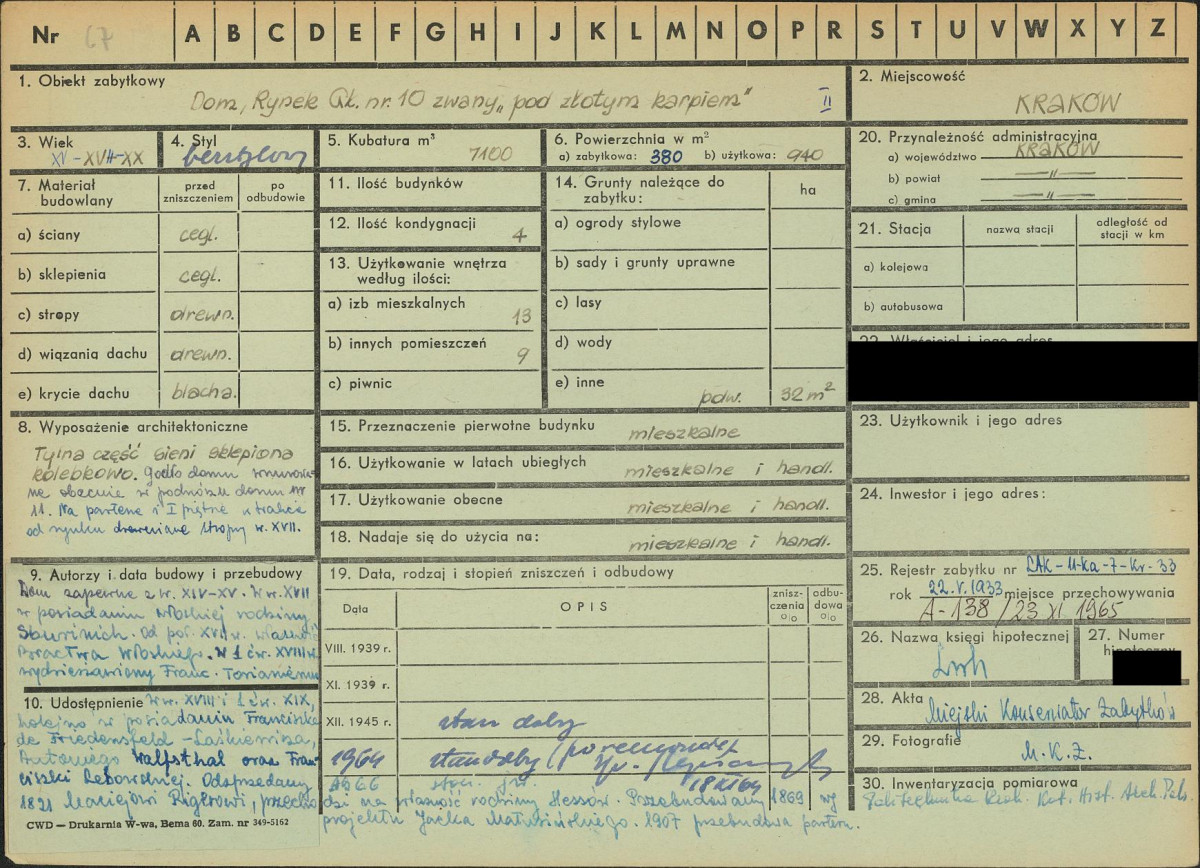 Nr 67 A B C D E F G H I J K L M N O P R S T U V W X Y Z
1. Obiekt zabytkowy
Dom, Rynek Gł. nr. 10 zwany „pod złotym karpiem" II
2. Miejscowość
KRAKÓW
3. Wiek
XV-XVII-XX
4. Styl
bezstylowy
5. Kubatura m³
7100
6. Powierzchnia w m²
a) zabytkowa: 380 b) użytkowa: 940
20. Przynależność administracyjna
a) województwo KRAKÓW
b) powiat —"—
c) gmina —"—
7. Materiał budowlany
przed zniszczeniem
po odbudowie
a) ściany cegl.
b) sklepienia cegl.
c) stropy drewn.
d) wiązania dachu drewn.
e) krycie dachu blacha.
11. Ilość budynków
12. Ilość kondygnacji 4
13. Użytkowanie wnętrza według ilości:
a) izb mieszkalnych 13
b) innych pomieszczeń 9
c) piwnic
14. Grunty należące do zabytku: ha
a) ogrody stylowe
b) sady i grunty uprawne
c) lasy
d) wody
e) inne podw. 32 m²
21. Stacja
nazwa stacji
odległość od stacji w km
a) kolejowa
b) autobusowa
22. Właściciel i jego adres
8. Wyposażenie architektoniczne
Tylna część sieni sklepiona
kolebkowo. Godło domu wmurowa-
ne obecnie w podnóżu domu nr
11. Na parterze i I piętrze w trakcie
od rynku drewniane stropy w. XVII.
15. Przeznaczenie pierwotne budynku mieszkalne
16. Użytkowanie w latach ubiegłych mieszkalne i handl.
17. Użytkowanie obecne mieszkalne i handl.
18. Nadaje się do użycia na: mieszkalne i handl.
23. Użytkownik i jego adres
24. Inwestor i jego adres:
9. Autorzy i data budowy i przebudowy
Dom zapewne z w. XIV-XV. W w. XVII
w posiadaniu włoskiej rodziny
Od poł. XVII w. własność
Bractwa Włoskiego. W 1 ćw. XVIII w.
wydzierżawiony Franc. Torianiemu
10. Udostępnienie W w. XVIII i 1 ćw. XIX,
kolejno w posiadaniu Franciszka
de Friedensfeld-Laśkiewicza,
Antoniego Walfsthal oraz Fran-
ciszki Rebowolnej. Odsprzedany
1821 Maciejowi Rigerowi, przecho
dzi na własność rodziny Hessów. Przebudowany 1869 wg
projektu Jacka Matusińskiego. 1907 przebudowa parteru.
CWD — Drukarnia W-wa, Bema 60. Zam. nr 349-5162
19. Data, rodzaj i stopień zniszczeń i odbudowy
Data OPIS zniszczenia % odbudowa %
VIII. 1939 r.
XI. 1939 r.
XII. 1945 r. stan dobry
1964 stan dobry (po remoncie)
18 XI 64
1966 stan jw.
25. Rejestr zabytku nr LAK-II-Ka-7-Kr-33
rok 22.V.1933 miejsce przechowywania
A-138 /23 XI 1965
26. Nazwa księgi hipotecznej
Lwh
27. Numer hipoteczny
28. Akta Miejski Konserwator Zabytków
29. Fotografie M.K.Z.
30. Inwentaryzacja pomiarowa
Politechnika Krak. Kat. Hist. Arch. Pols.